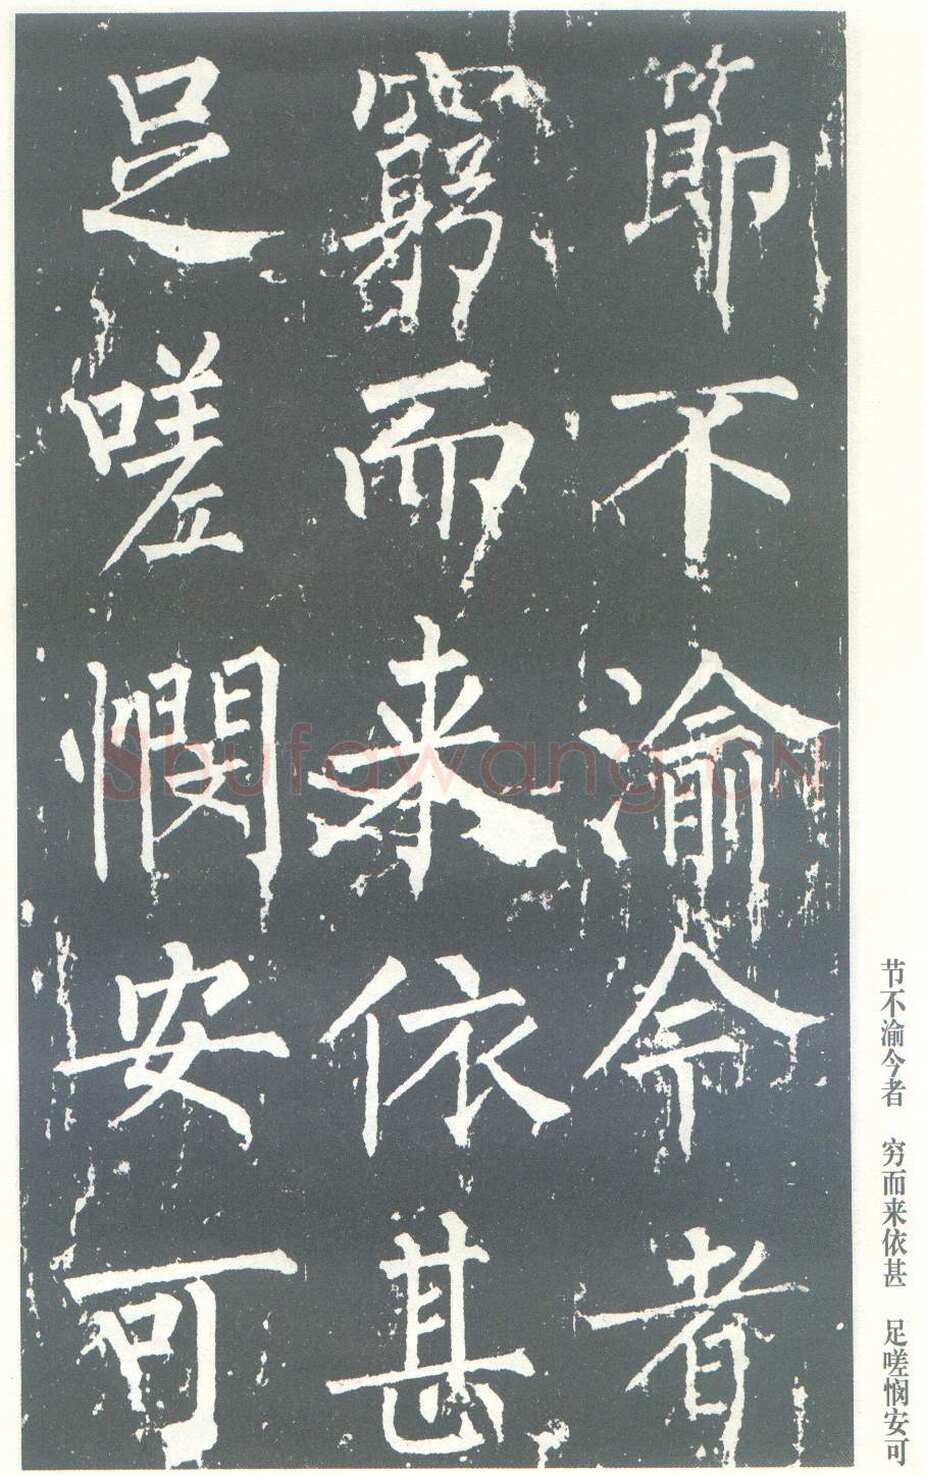 節不渝今者
窮而来依甚
足嗟憫安可
节不渝今者 穷而来依甚 足嗟悯安可
Shufawang.CN